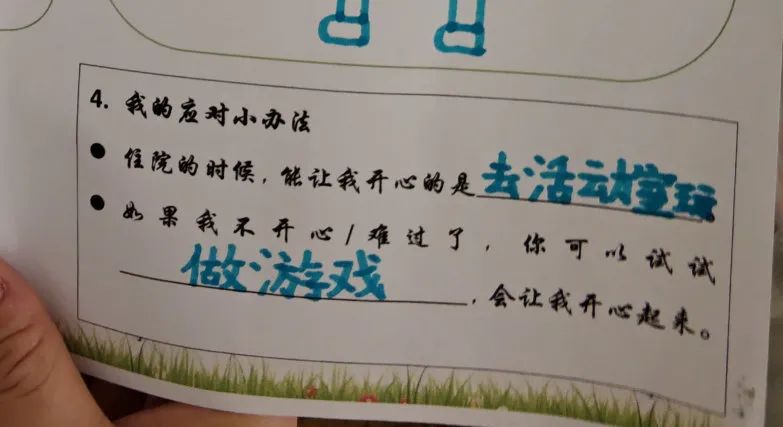 4. 我的应对小办法
● 住院的时候，能让我开心的是去活动室玩
● 如果我不开心/难过了，你可以试试
做游戏，会让我开心起来。